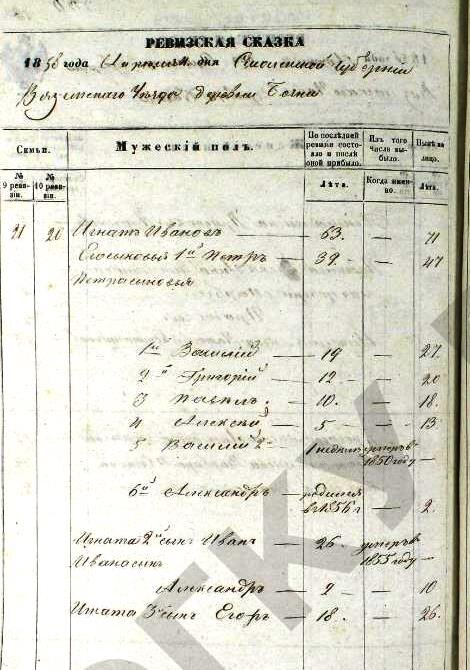 РЕВИЗСКАЯ СКАЗКА
1858 года Апреля дня Смоленской Губерніи
Вяземскаго Уѣзда деревни
Семьи.
Мужескій полъ.
По послѣдней ревизіи состояло и послѣ оной прибыло.
Изъ того числа выбыло.
Нынѣ на лицо.
№ 9 ревизіи.
№ 10 ревизіи.
Лѣта.
Когда именно.
Лѣта.
21 20 Игнатъ Ивановъ — 63. — 71
Егосыновья 1й Петръ — 39. — 47
Петрасыновья
1й Василій — 19 — 27.
2й Григорій — 12 — 20
3 Павелъ — 10. — 18.
4 Алексѣй — 5 — 13
5 Василій 2й — умеръ въ 1850 году —
6й Александръ — родился въ 1856 г — 2.
Игната 2й сынъ Иванъ — 26. умеръ въ 1855 году —
Иванасынъ
Александръ — 2 — 10
Игната 3й сынъ Егоръ — 18. — 26.